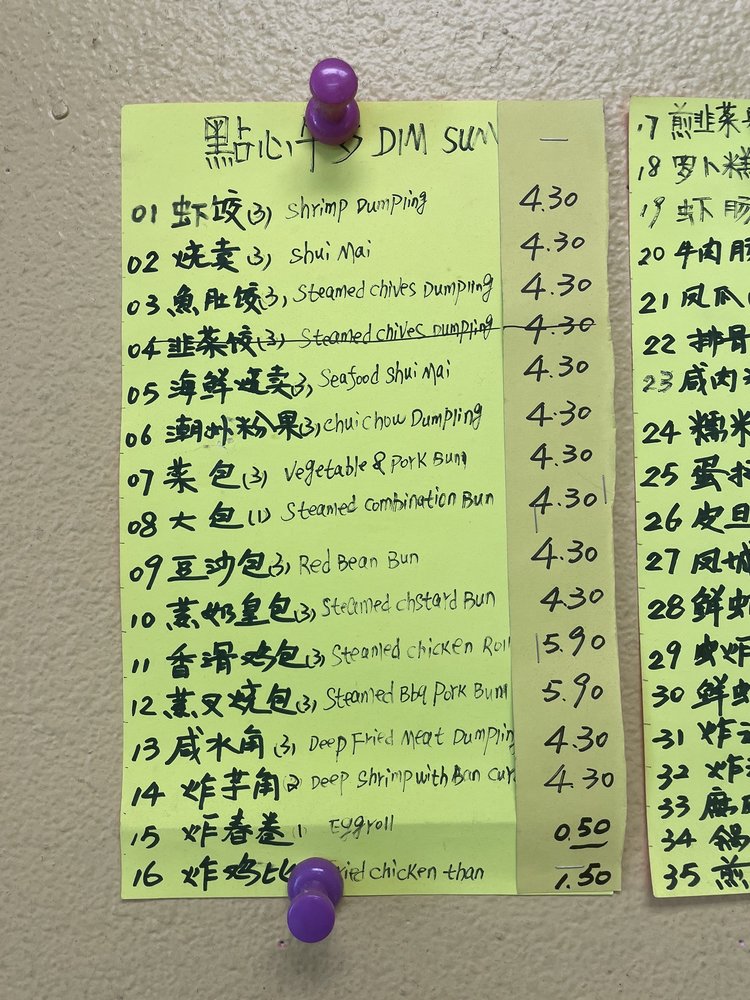 點心 DIM SUM —
01 虾饺(3) Shrimp Dumpling 4.30
02 烧卖(3) Shui Mai 4.30
03 魚肚饺(3) Steamed chives Dumpling 4.30
04 韭菜饺(3) Steamed chives Dumpling 4.30
05 海鲜烧卖(3) Seafood Shui Mai 4.30
06 潮州粉果(3) chui chow Dumpling 4.30
07 菜包(3) Vegetable & Pork Bun 4.30
08 大包(1) Steamed Combination Bun 4.30
09 豆沙包(3) Red Bean Bun 4.30
10 蒸奶皇包(3) Steamed chstard Bun 4.30
11 香滑鸡包(3) Steamed chicken Roll 5.90
12 蒸叉烧包(3) Steamed Bbq Pork Bun 5.90
13 咸水角(3) Deep Fried Meat Dumpling 4.30
14 炸芋角(2) Deep Shrimp with Ban Cur 4.30
15 炸春卷(1) Eggroll 0.50
16 炸鸡 Fried chicken than 1.50
17 煎韭菜
18 罗卜糕
19 虾肠
20 牛肉肠
21 凤爪
22 排骨
23 咸肉
24 糯米
25 蛋
26 皮旦
27 凤城
28 鲜虾
29 炸
30 鲜虾
31 炸
32 炸
33
34 锅
35 煎